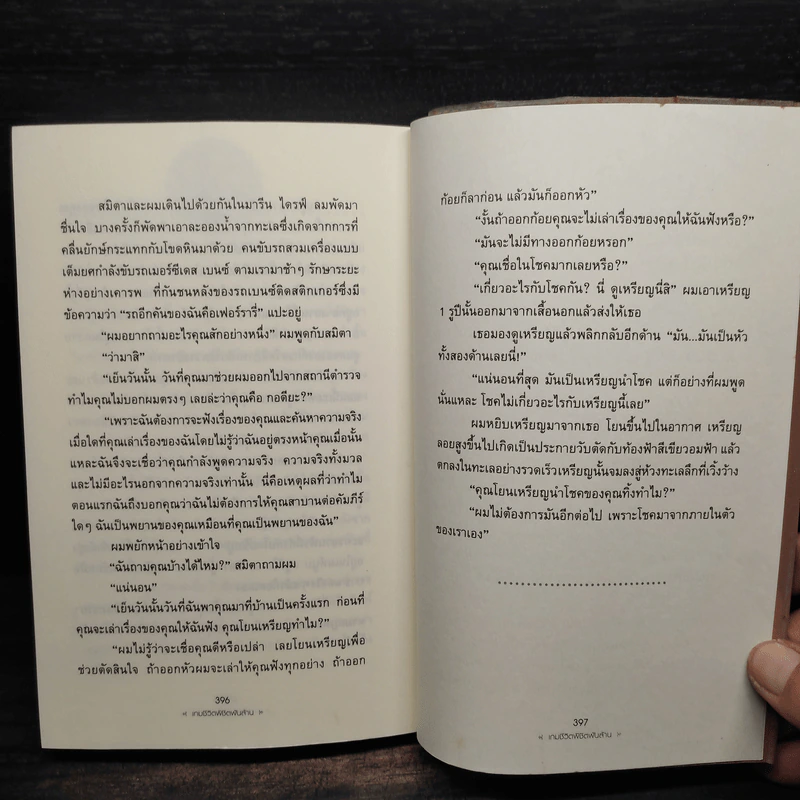 สมิตาและผมเดินไปด้วยกันในมารีน ไดรฟ์ ลมพัดมา
ชื่นใจ บางครั้งก็พัดพาเอาละอองน้ำจากทะเลซึ่งเกิดจากการที่
คลื่นยักษ์กระแทกกับโขดหินมาด้วย คนขับรถสวมเครื่องแบบ
เต็มยศกำลังขับรถเมอร์ซีเดส เบนซ์ ตามเรามาช้าๆ รักษาระยะ
ห่างอย่างเคารพ ที่กันชนหลังของรถเบนซ์ติดสติกเกอร์ซึ่งมี
ข้อความว่า “รถอีกคันของฉันคือเฟอร์รารี่” แปะอยู่
“ผมอยากถามอะไรคุณสักอย่างหนึ่ง” ผมพูดกับสมิตา
“ว่ามาสิ”
“เย็นวันนั้น วันที่คุณมาช่วยผมออกไปจากสถานีตำรวจ
ทำไมคุณไม่บอกผมตรงๆ เลยล่ะว่าคุณคือ กอดียะ?”
“เพราะฉันต้องการจะฟังเรื่องของคุณและค้นหาความจริง
เมื่อใดที่คุณเล่าเรื่องของฉันโดยไม่รู้ว่าฉันอยู่ตรงหน้าคุณเมื่อนั้น
แหละฉันจึงจะเชื่อว่าคุณกำลังพูดความจริง ความจริงทั้งมวล
และไม่มีอะไรนอกจากความจริงเท่านั้น นี่คือเหตุผลที่ว่าทำไม
ตอนแรกฉันถึงบอกคุณว่าฉันไม่ต้องการให้คุณสาบานต่อคัมภีร์
ใดๆ ฉันเป็นพยานของคุณเหมือนที่คุณเป็นพยานของฉัน”
ผมพยักหน้าอย่างเข้าใจ
“ฉันถามคุณบ้างได้ไหม?” สมิตาถามผม
“แน่นอน”
“เย็นวันนั้นวันที่ฉันพาคุณมาที่บ้านเป็นครั้งแรก ก่อนที่
คุณจะเล่าเรื่องของคุณให้ฉันฟัง คุณโยนเหรียญทำไม?”
“ผมไม่รู้ว่าจะเชื่อคุณดีหรือเปล่า เลยโยนเหรียญเพื่อ
ช่วยตัดสินใจ ถ้าออกหัวผมจะเล่าให้คุณฟังทุกอย่าง ถ้าออก
396
เกมชีวิตพิชิตพันล้าน
ก้อยก็ลาก่อน แล้วมันก็ออกหัว”
“งั้นถ้าออกก้อยคุณจะไม่เล่าเรื่องของคุณให้ฉันฟังหรือ?”
“มันจะไม่มีทางออกก้อยหรอก”
“คุณเชื่อในโชคมากเลยหรือ?”
“เกี่ยวอะไรกับโชคกัน? นี่ ดูเหรียญนี่สิ” ผมเอาเหรียญ
1 รูปีนั้นออกมาจากเสื้อนอกแล้วส่งให้เธอ
เธอมองดูเหรียญแล้วพลิกกลับอีกด้าน “มัน...มันเป็นหัว
ทั้งสองด้านเลยนี่!”
“แน่นอนที่สุด มันเป็นเหรียญนำโชค แต่ก็อย่างที่ผมพูด
นั่นแหละ โชคไม่เกี่ยวอะไรกับเหรียญนี้เลย”
ผมหยิบเหรียญมาจากเธอ โยนขึ้นไปในอากาศ เหรียญ
ลอยสูงขึ้นไปเกิดเป็นประกายวับตัดกับท้องฟ้าสีเขียวอมฟ้า แล้ว
ตกลงในทะเลอย่างรวดเร็วเหรียญนั้นจมลงสู่ห้วงทะเลลึกที่เวิ้งว้าง
“คุณโยนเหรียญนำโชคของคุณทิ้งทำไม?”
“ผมไม่ต้องการมันอีกต่อไป เพราะโชคมาจากภายในตัว
ของเราเอง”
..............................
397
เกมชีวิตพิชิตพันล้าน